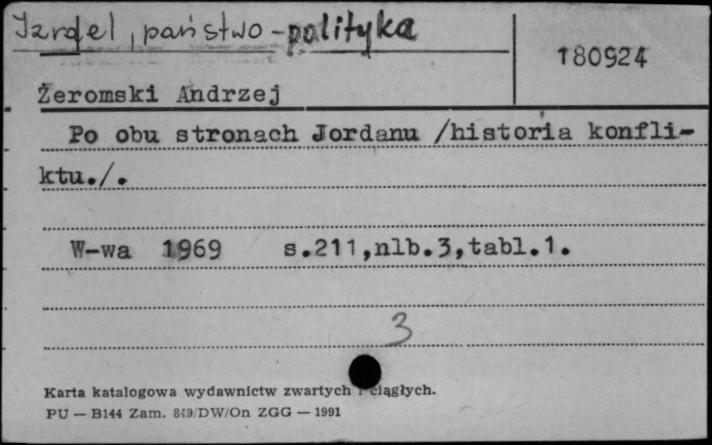 Izrael, państwo - polityka
180924
Żeromski Andrzej
Po obu stronach Jordanu /historia konfli-
ktu./.
W-wa 1969 s.211,nlb.3,tabl.1.
3
Karta katalogowa wydawnictw zwartych i ciągłych.
PU — B144 Zam. 849/DW/On ZGG — 1991